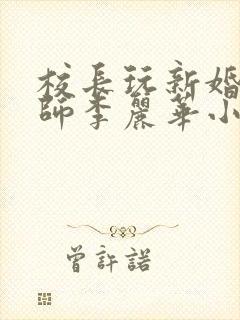 校長玩新婚
師李麗華小
曾許諾